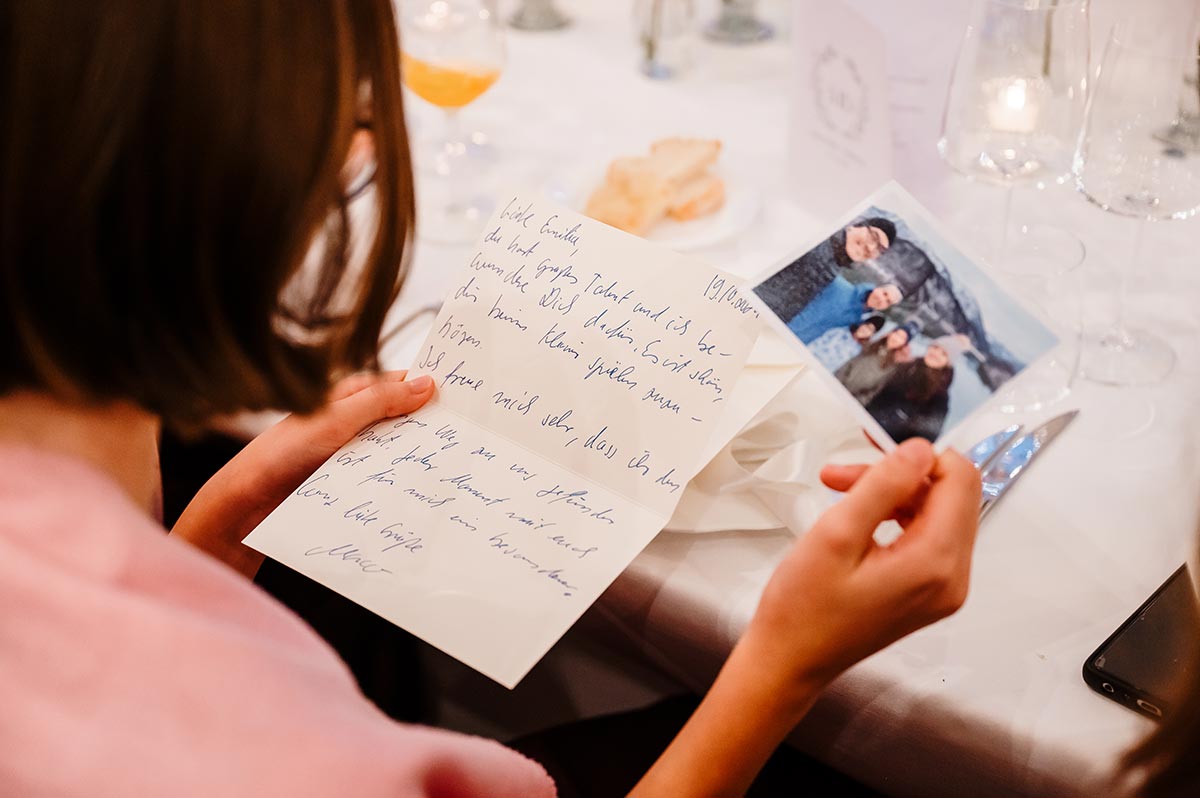 19.10.
Liebe Emilia,
du hast großes Talent und ich be-
wundere Dich dafür. Es ist schön,
dir beim Klavier spielen zuzu-
hören.
Ich freue mich sehr, dass ihr den
Weg zu uns gefunden
habt. Jeder Moment mit euch
ist für mich ein besonderer.
Ganz liebe Grüße